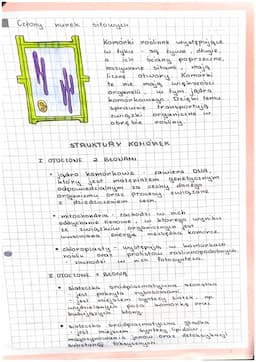 Człony rurek sitowych
Komórki roślinne występujące
w łyku - są żywe, długie,
a ich ściany poprzeczne,
nazywane sitami, mają
liczne otwory. Komórki
te nie mają większości
organelli, w tym jądra
komórkowego. Dzięki temu
sprawnie transportują
związki organiczne w
obrębie rośliny.
STRUKTURY KOMÓREK
I OTOCZONE 2 BŁONAMI
• jądro komórkowe - zawiera DNA,
który jest materiałem genetycznym
odpowiedzialnym za cechy danego
organizmu oraz procesy związane
z dziedziczeniem cech.
• mitochondria - zachodzi w nich
oddychanie tlenowe, w którego wyniku
ze związków organicznych jest
uwalniana energia niezbędna komórce.
• chloroplasty - występują w komórkach
roślin oraz protistów roślinopodobnych
zachodzi w nich fotosynteza.
II OTOCZONE 1 BŁONĄ
• siateczka śródplazmatyczna szorstka
- jest pokryta rybosomami
- jest miejscem syntezy białek, np.
wydzielanych poza komórkę oraz
budujących błony
• siateczka śródplazmatyczna gładka
- jest miejscem syntezy lipidów,
magazynowania jonów oraz detoksykacji
substancji toksycznych.